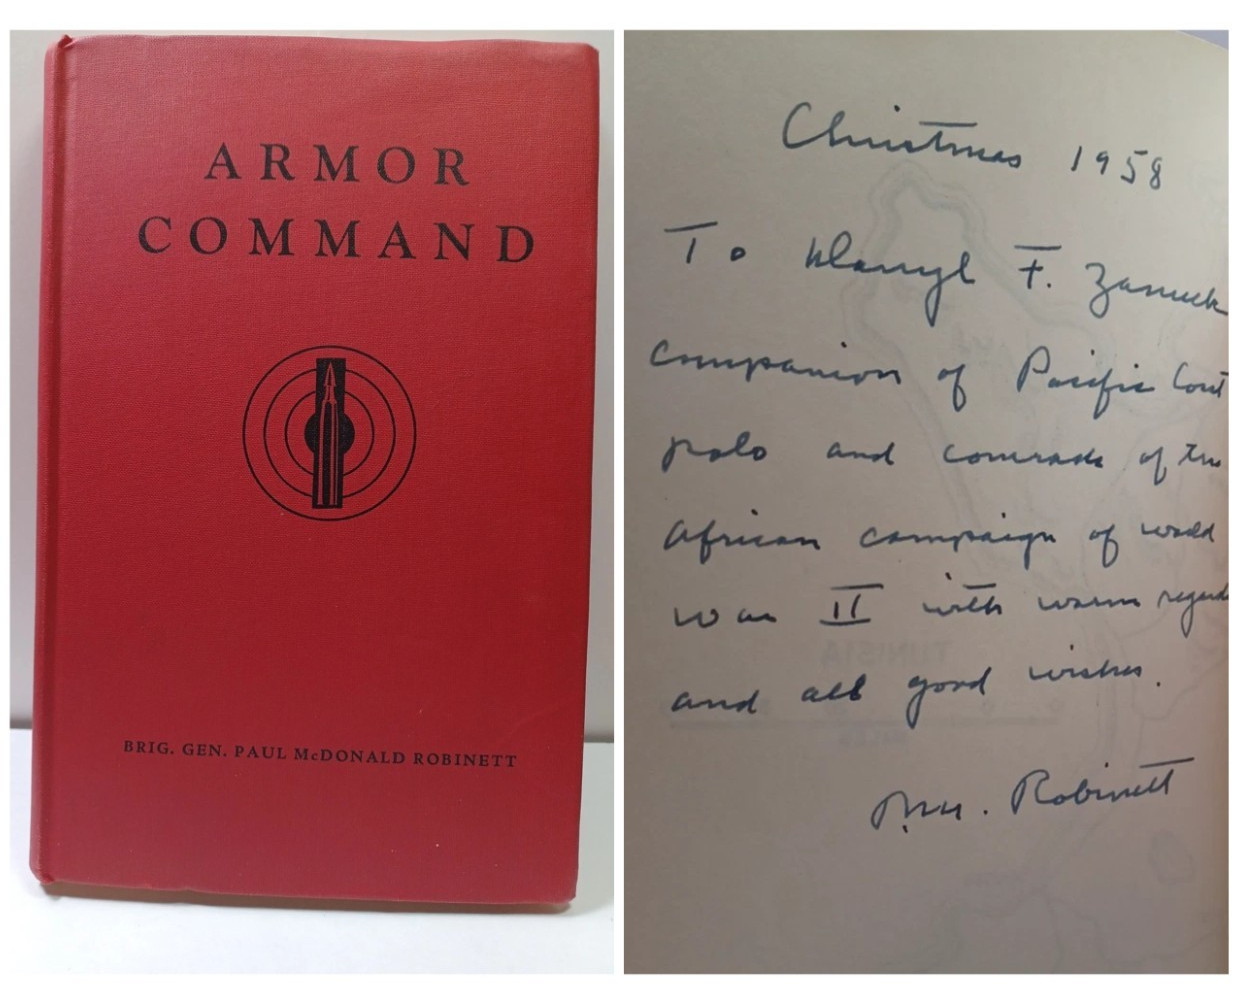 ARMOR
COMMAND
BRIG. GEN. PAUL McDONALD ROBINETT
Christmas 1958
To Darryl F. Zanuck
companion of Pacific Cost
polo and comrade of the
African campaign of world
war II with warm regards
and all good wishes.
P.M. Robinett
TUNISIA